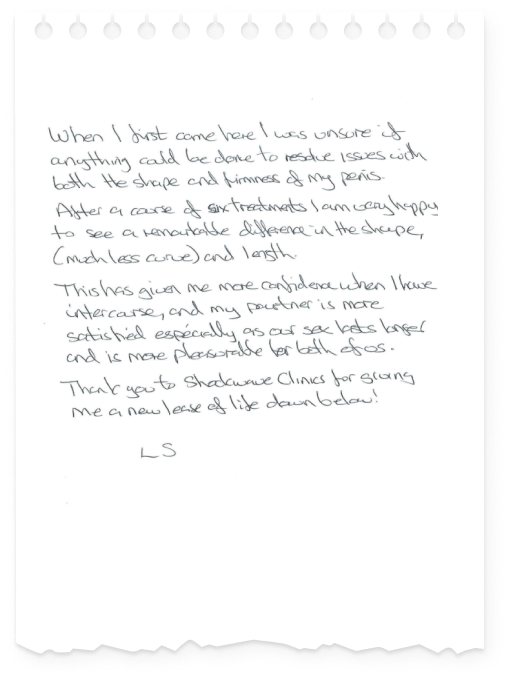 When I first came here I was unsure if
anything could be done to resolve issues with
both the shape and firmness of my penis.
After a course of six treatments I am very happy
to see a remarkable difference in the shape,
(much less curve) and length.
This has given me more confidence when I have
intercourse, and my partner is more
satisfied especially as our sex lasts longer
and is more pleasurable for both of us.
Thank you to Shockwave Clinics for giving
me a new lease of life down below!
LS